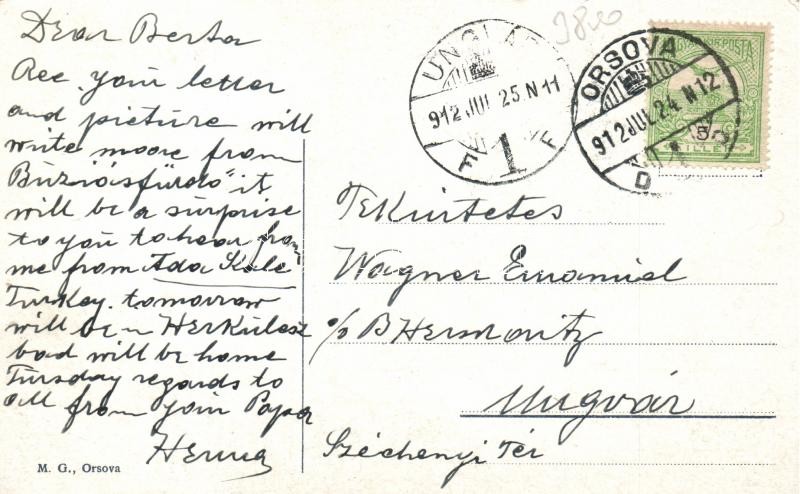 Dear Berta
Rec. your letter
and picture will
write moore from
Buziásfürdö" it
will be a surprise
to you to hear from
me from Ada Kale
Turkey. tomorrow
will be in Herkulesz
bad will be home
Tursday regards to
all from your Papa
M. G., Orsova
UNGVÁR
912 JUL 25 N 11
F 1 F
ORSOVA
912 JUL 24 N 12
D
MAGYAR KIR. POSTA
5
FILLÉR
Tekintetes
Wagner Emanuel
c/o B Hermovitz
Ungvár
Széchenyi Tér